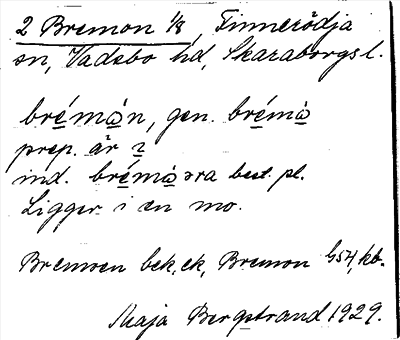 2 Bremon 1/8, Finnerödja
sn, Vadsbo hd, Skaraborgs l.
brémån, gen. brémå
prep. är i
ind. brémåəra best. pl.
Ligger i en mo.
Bremoen bek, ek, Bremon G54, kb.
Maja Bergstrand 1929.